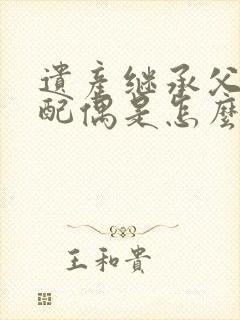 遺産继承父
配偶是怎麼
王和貴